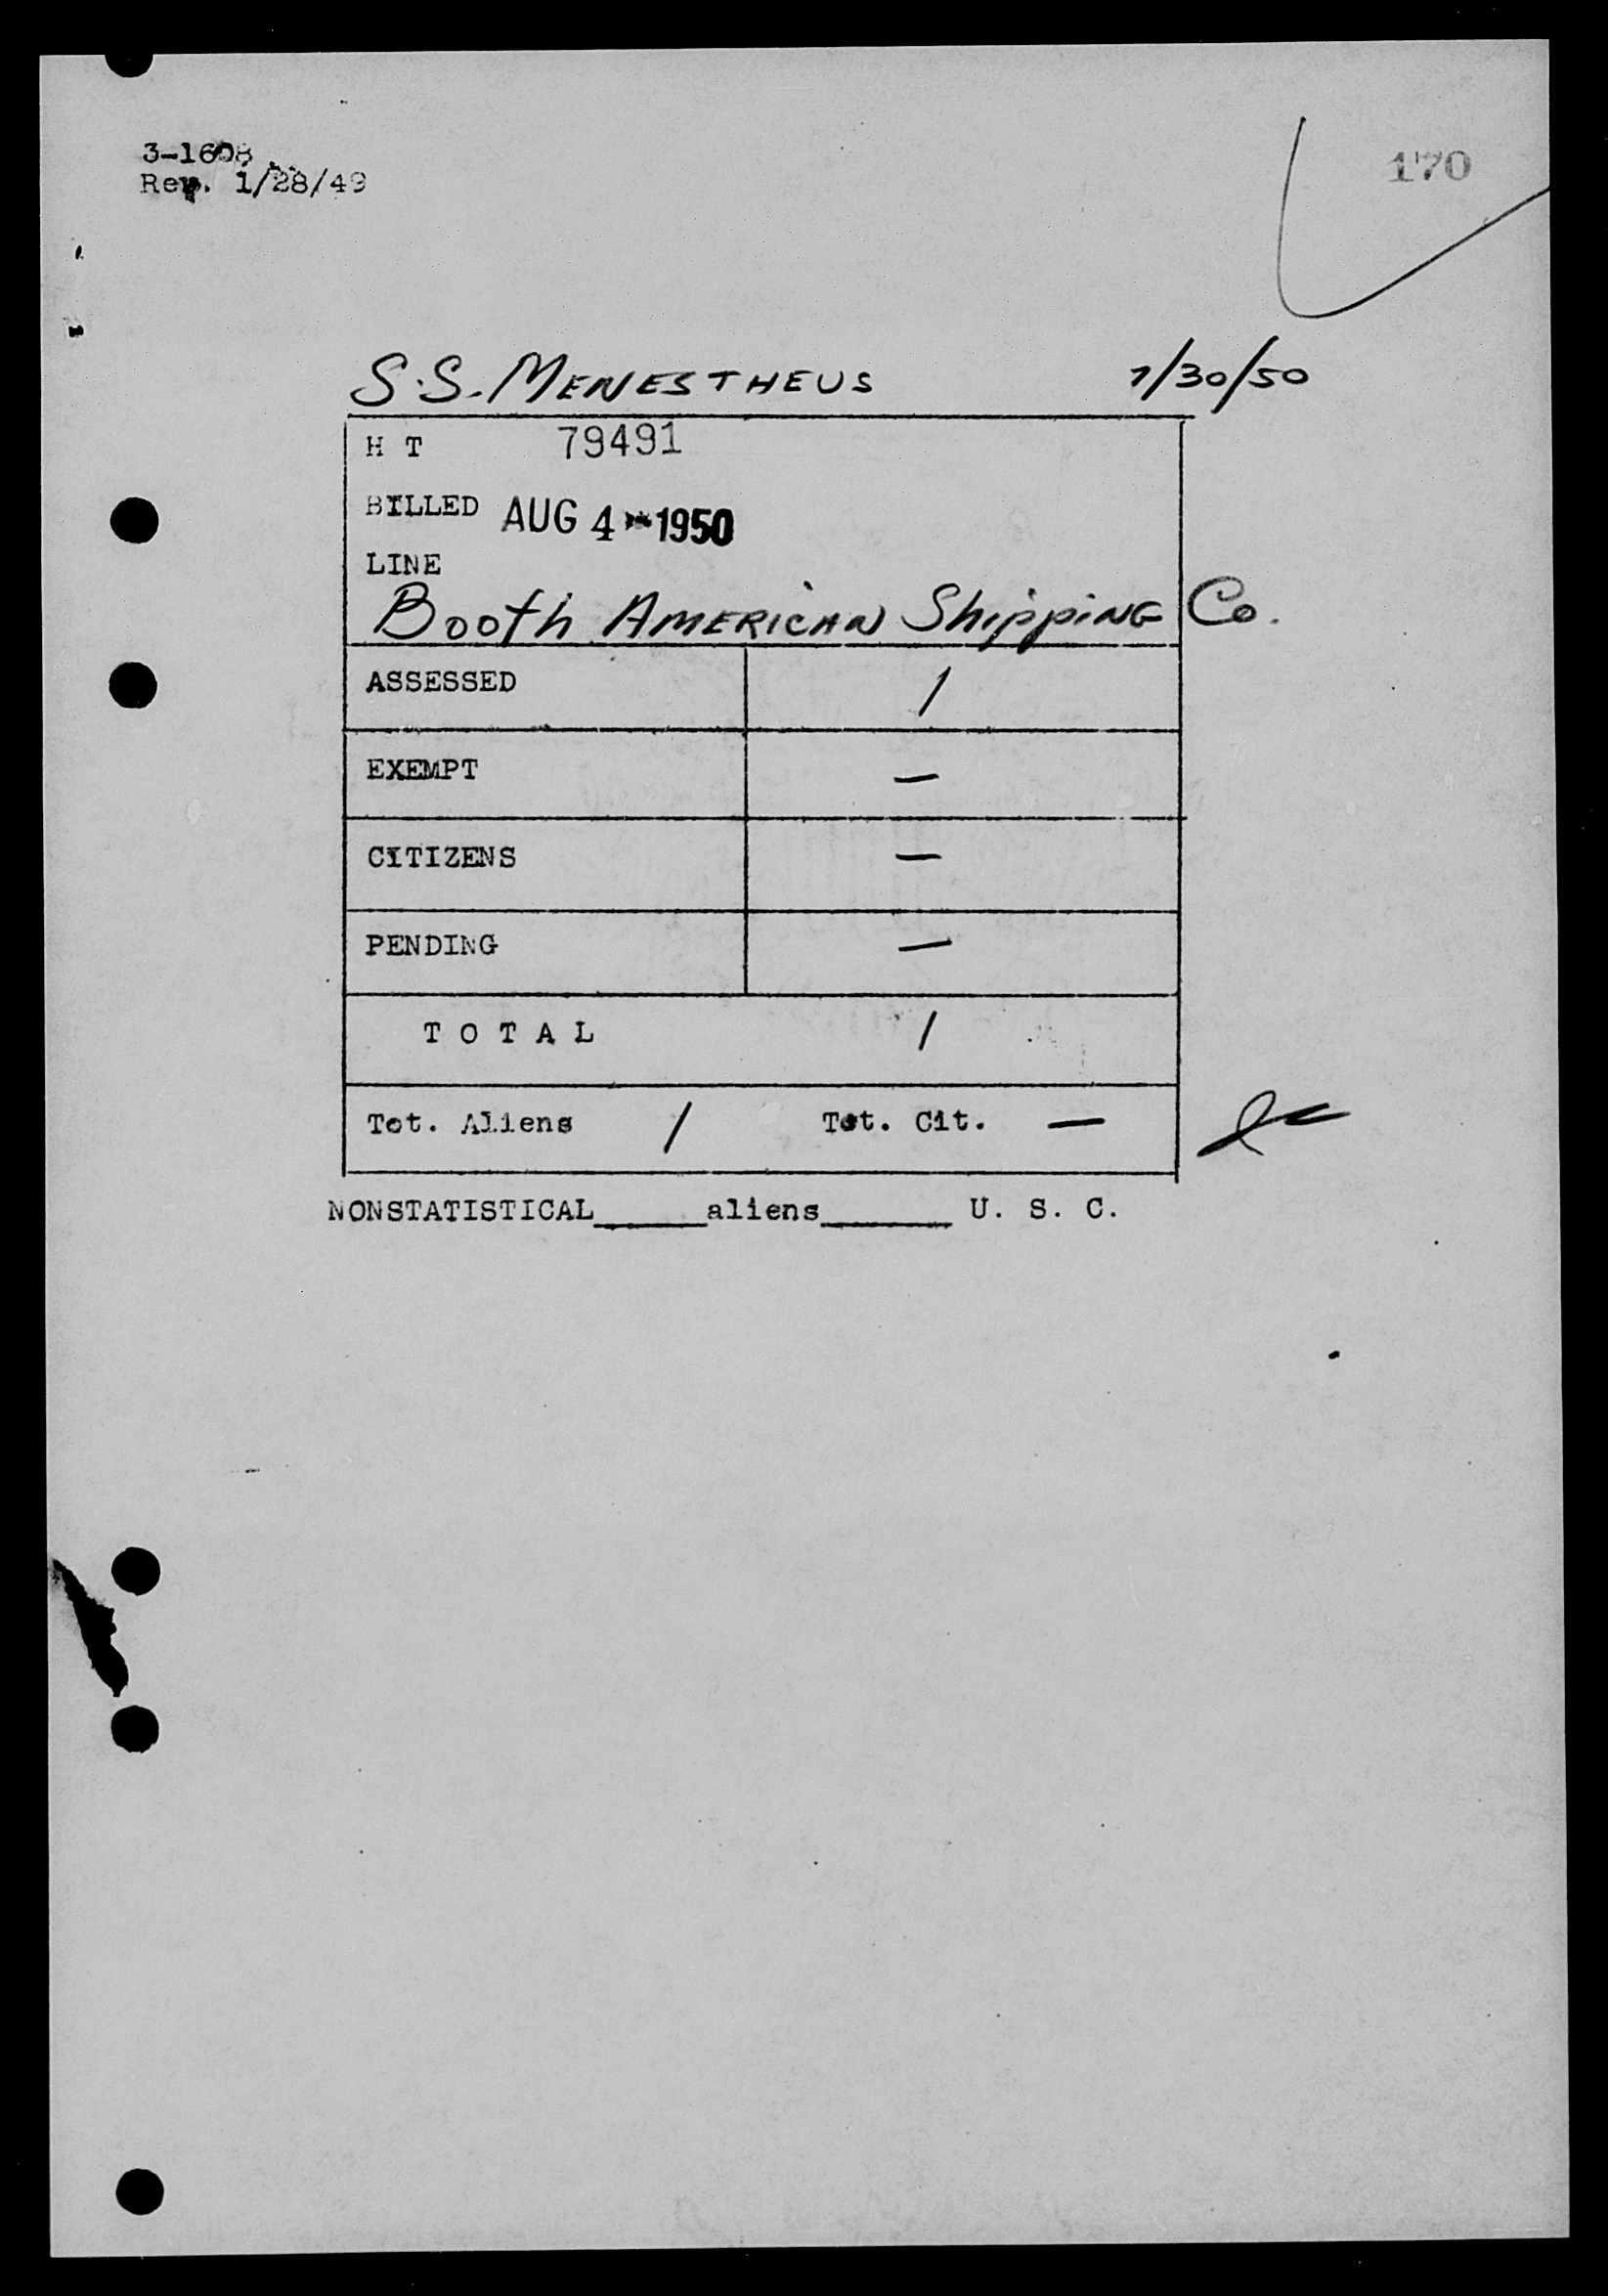 3-1608
Rev. 1/28/49
170
S.S. MENESTHEUS 7/30/50
H T 79491
BILLED AUG 4 1950
LINE
Booth AMERICAN Shipping Co.
ASSESSED 1
EXEMPT —
CITIZENS —
PENDING —
T O T A L 1
Tot. Aliens 1 Tot. Cit. —
NONSTATISTICAL______aliens_______ U. S. C.